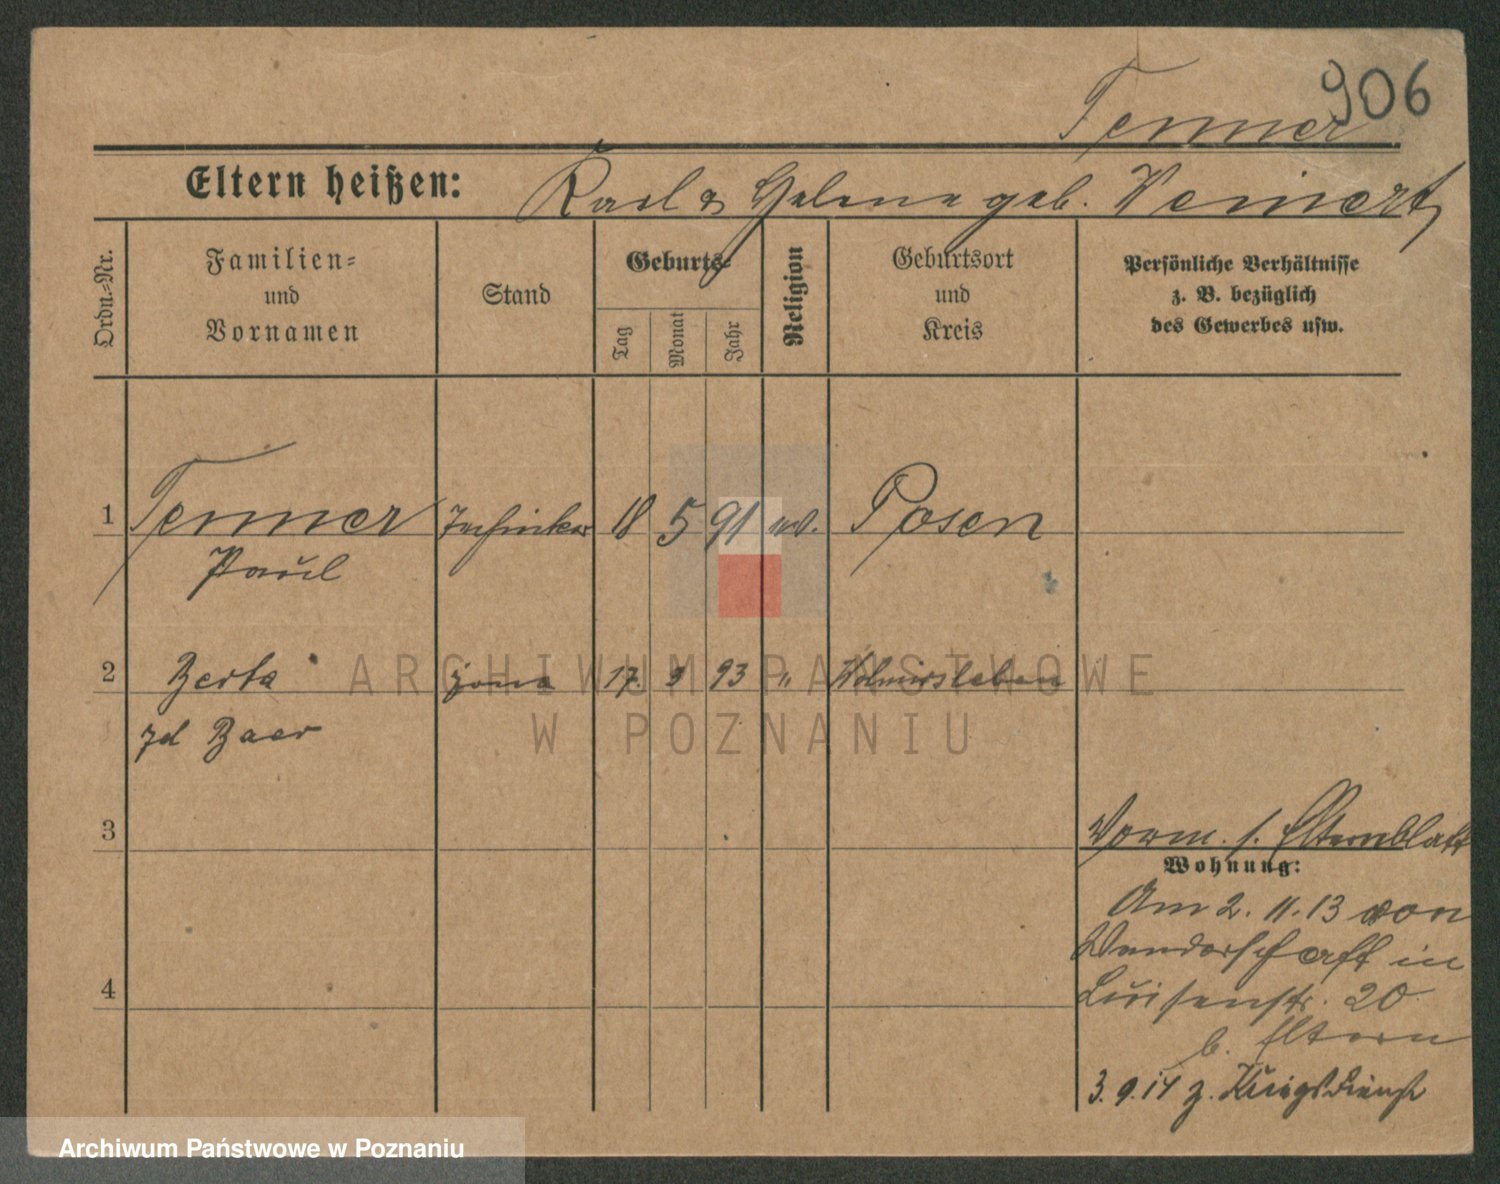 906
Tenner
Eltern heißen: Karl & Helene geb. Weinert
Ordn.-Nr.
Familien-
und
Vornamen
Stand
Geburts-
Tag
Monat
Jahr
Religion
Geburtsort
und
Kreis
Persönliche Verhältnisse
z. B. bezüglich
des Gewerbes usw.
1 Tenner Techniker 18 5 91 ev. Posen
Paul
2 Berta 17. 3 93 " Wolmirsleben
Baer
3
Vorm. s. Elternblatt
Wohnung:
Am 2. 11. 13 von
Wanderschaft in
4
Luisenstr. 20
b. Eltern
3. 9. 14 z. Kriegsdienst
ARCHIWUM PAŃSTWOWE
W POZNANIU
Archiwum Państwowe w Poznaniu